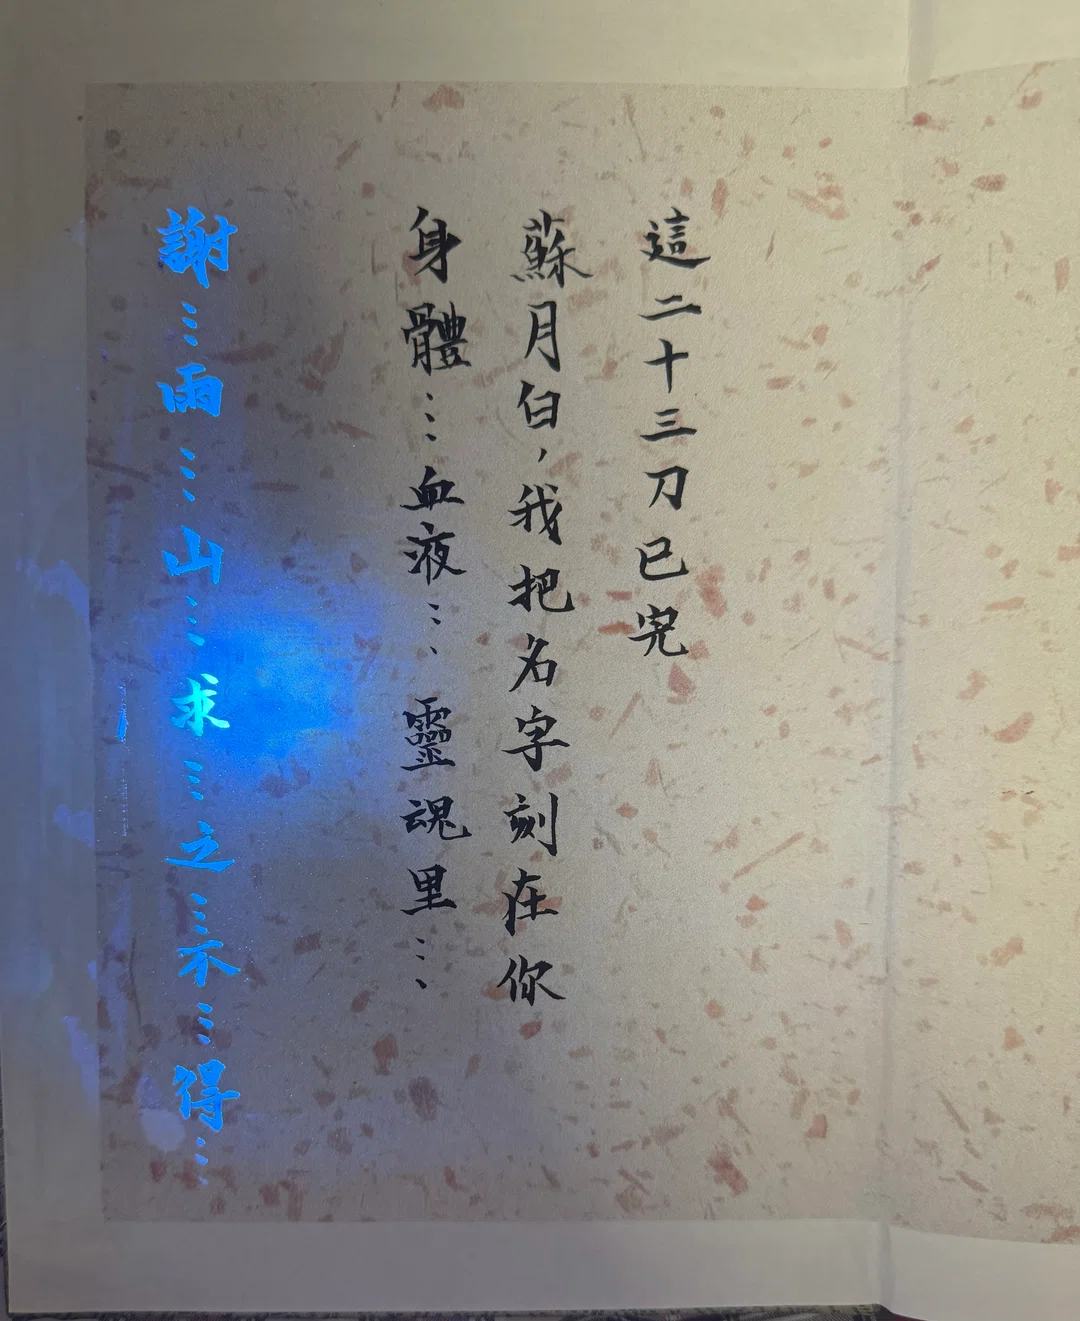 這二十三刀已完
蘇月白,我把名字刻在你
身體……血液……靈魂里……
謝……雨……山……求……之……不……得……